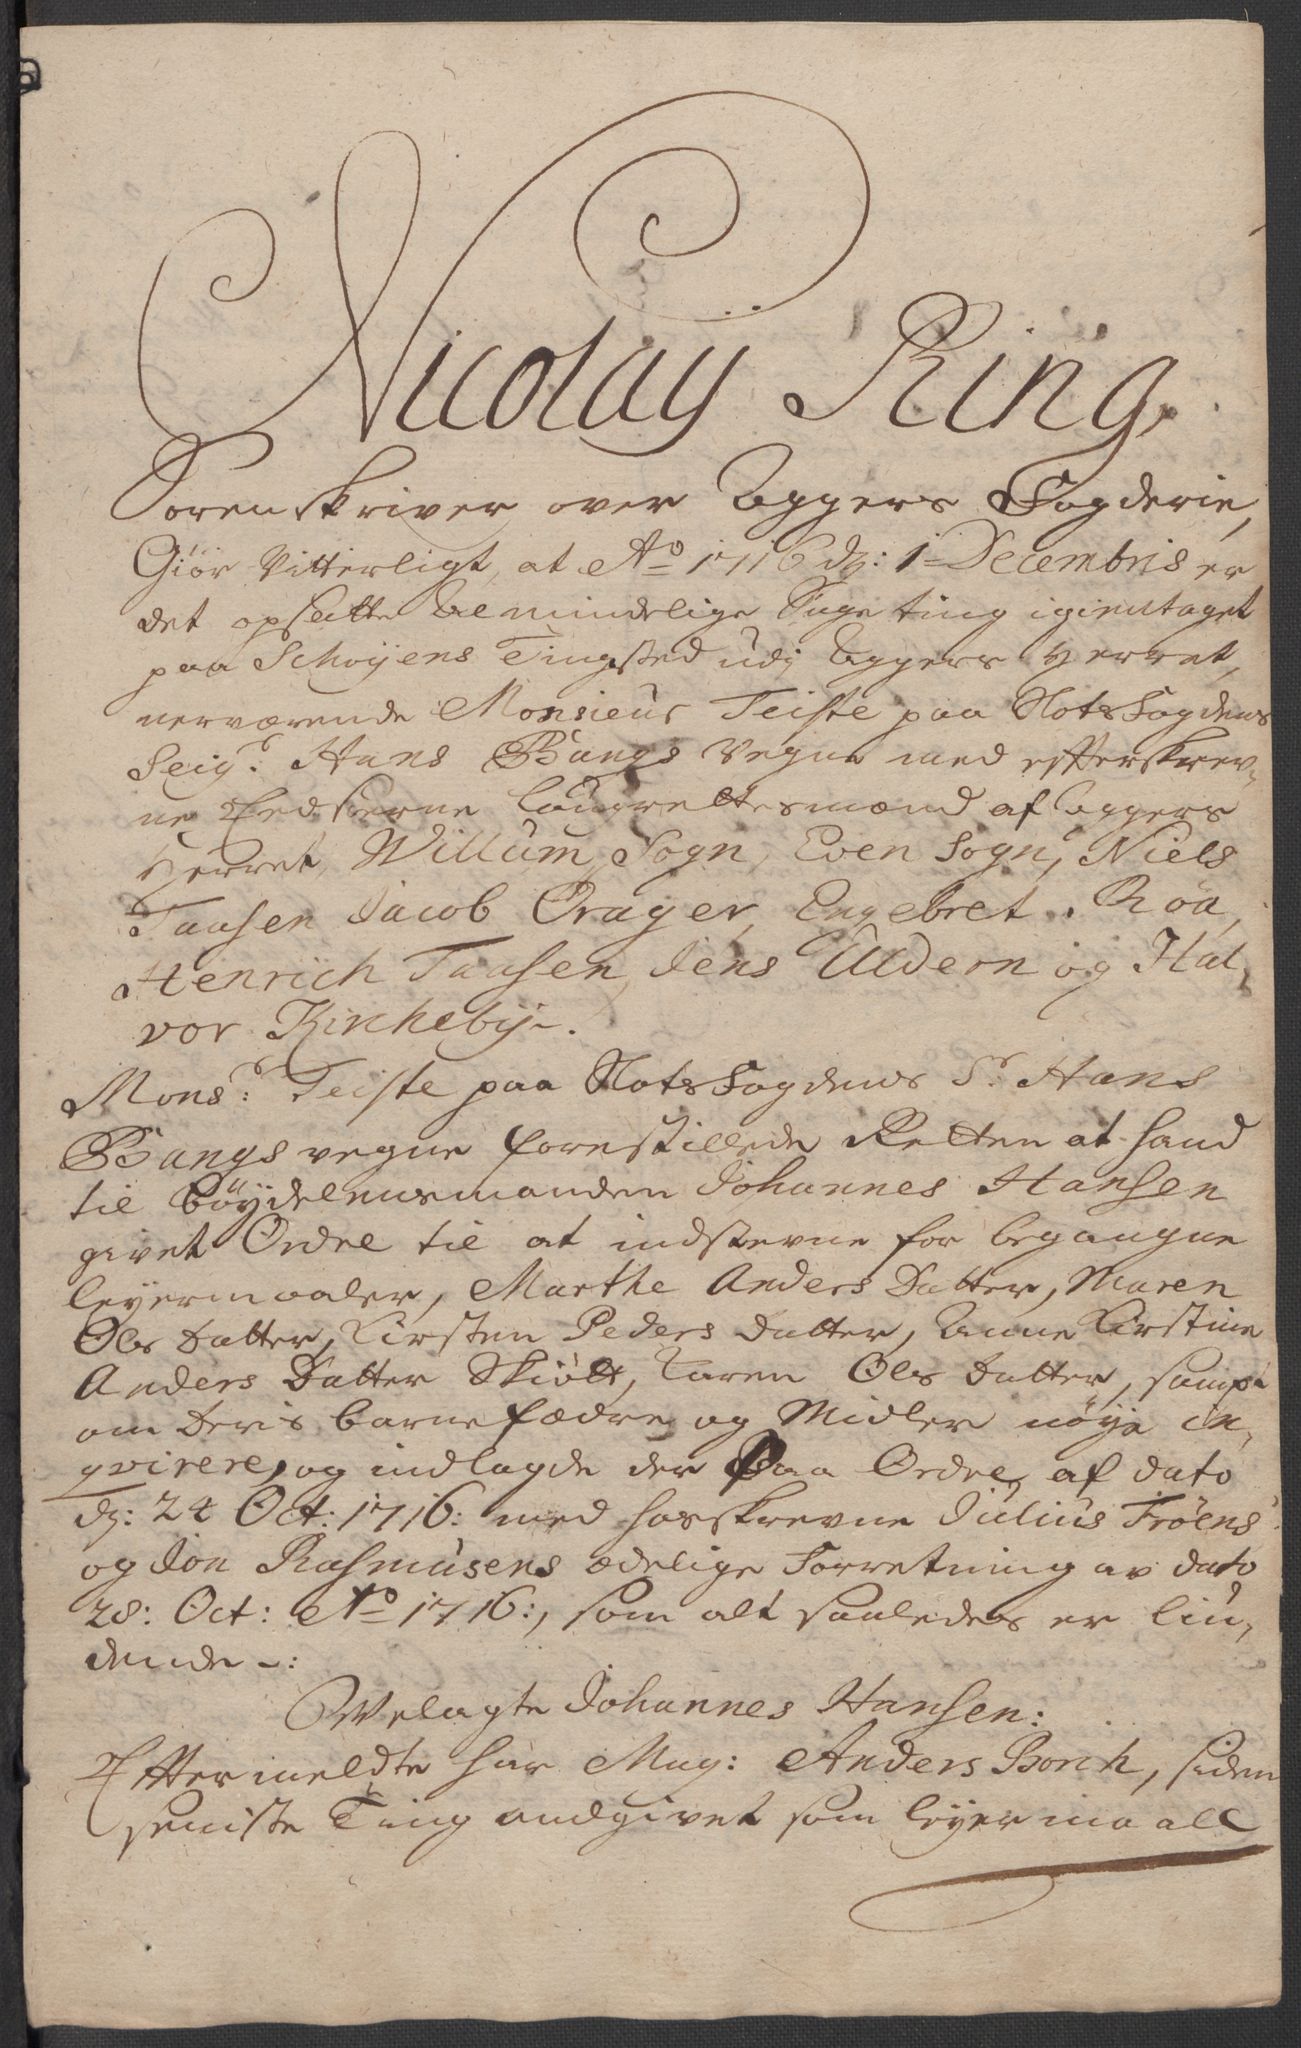 Nicolaÿ Ring,
Sorenskriver over Aggers Fogderie,
Giör Vitterligt, at Ao 1716 dz: 1 Decembris er
det opsatte Almindelige Sage ting igientaget
paa Schoÿens Tingsted udj Aggers Herret,
nerværende Monsieur Teiste paa SlotsFogdens
Seigr. Hans Bangs Vegne med effterskrev,
ne Eedsorne laugrettesmænd af Aggers
Herret, Willum Sogn, Even Sogn, Niels
Taasen Jacob Orager, Engebret Röa,
Henrich Taasen, Jens Uldern og Hal,
vor Kirkebÿ-.
Monsr: Teiste paa SlotsFogdens Sr. Hans
Bangs vegne forestillede Retten at hand
til böÿdelensmanden Johannes Hansen
givet Ordre til at indstevne for begangne
leÿermaaler, Marthe Anders Datter, Maren
Ols Datter, Kirsten Peders Datter, Anne Kirstine
Anders Datter Skiölt, Karen Ols Datter, sampt
om deris barnefædre og Midler nöÿe in,
qvirere, og indlagde der Paa Ordre, af dato
dz: 24 Oct: 1716: med hosskrevne Julius Fröens
og Jon Rasmusens ædelige Forretning av dato
28: Oct: Ao 1716:, som alt saaledes er liu,
dende -:
Velagte Johannes Hansen:
Efftermeldte har Mag: Anders Borch, siden
seniste Ting andgivet som leÿermaall